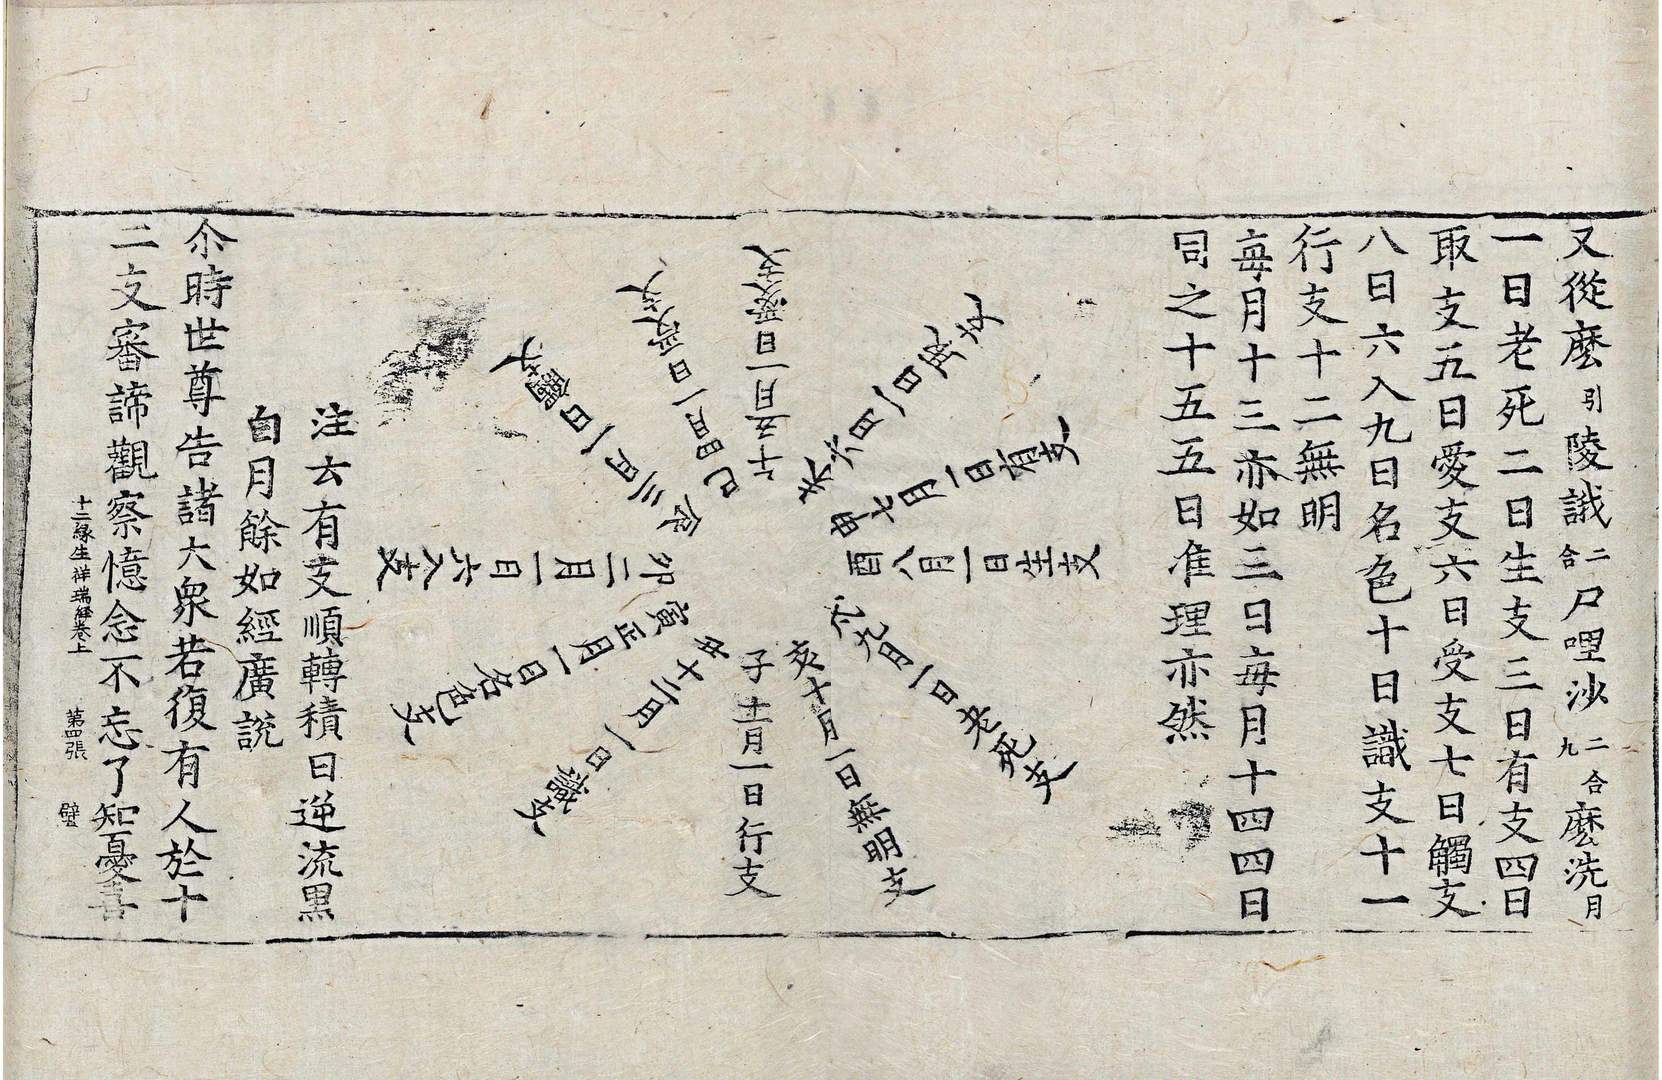 又從麽引陵誐二合尸哩沙二合九麽洗月
一日老死二日生支三日有支四日
取支五日愛支六日受支七日觸支
八日六入九日名色十日識支十一
行支十二無明
每月十三亦如三日每月十四四日
同之十五五日准理亦然
子十一月一日行支
丑十二月一日識支
寅正月一日名色支
卯二月一日六入支
辰三月一日觸支
巳四月一日受支
午五月一日愛支
未六月一日取支
申七月一日有支
酉八月一日生支
戌九月一日老死支
亥十月一日無明支
注云有支順轉積日逆流黑
自月餘如經廣說
尒時世尊告諸大衆若復有人於十
二支審諦觀察憶念不忘了知憂喜
十二緣生祥瑞經卷上 第四張 璧